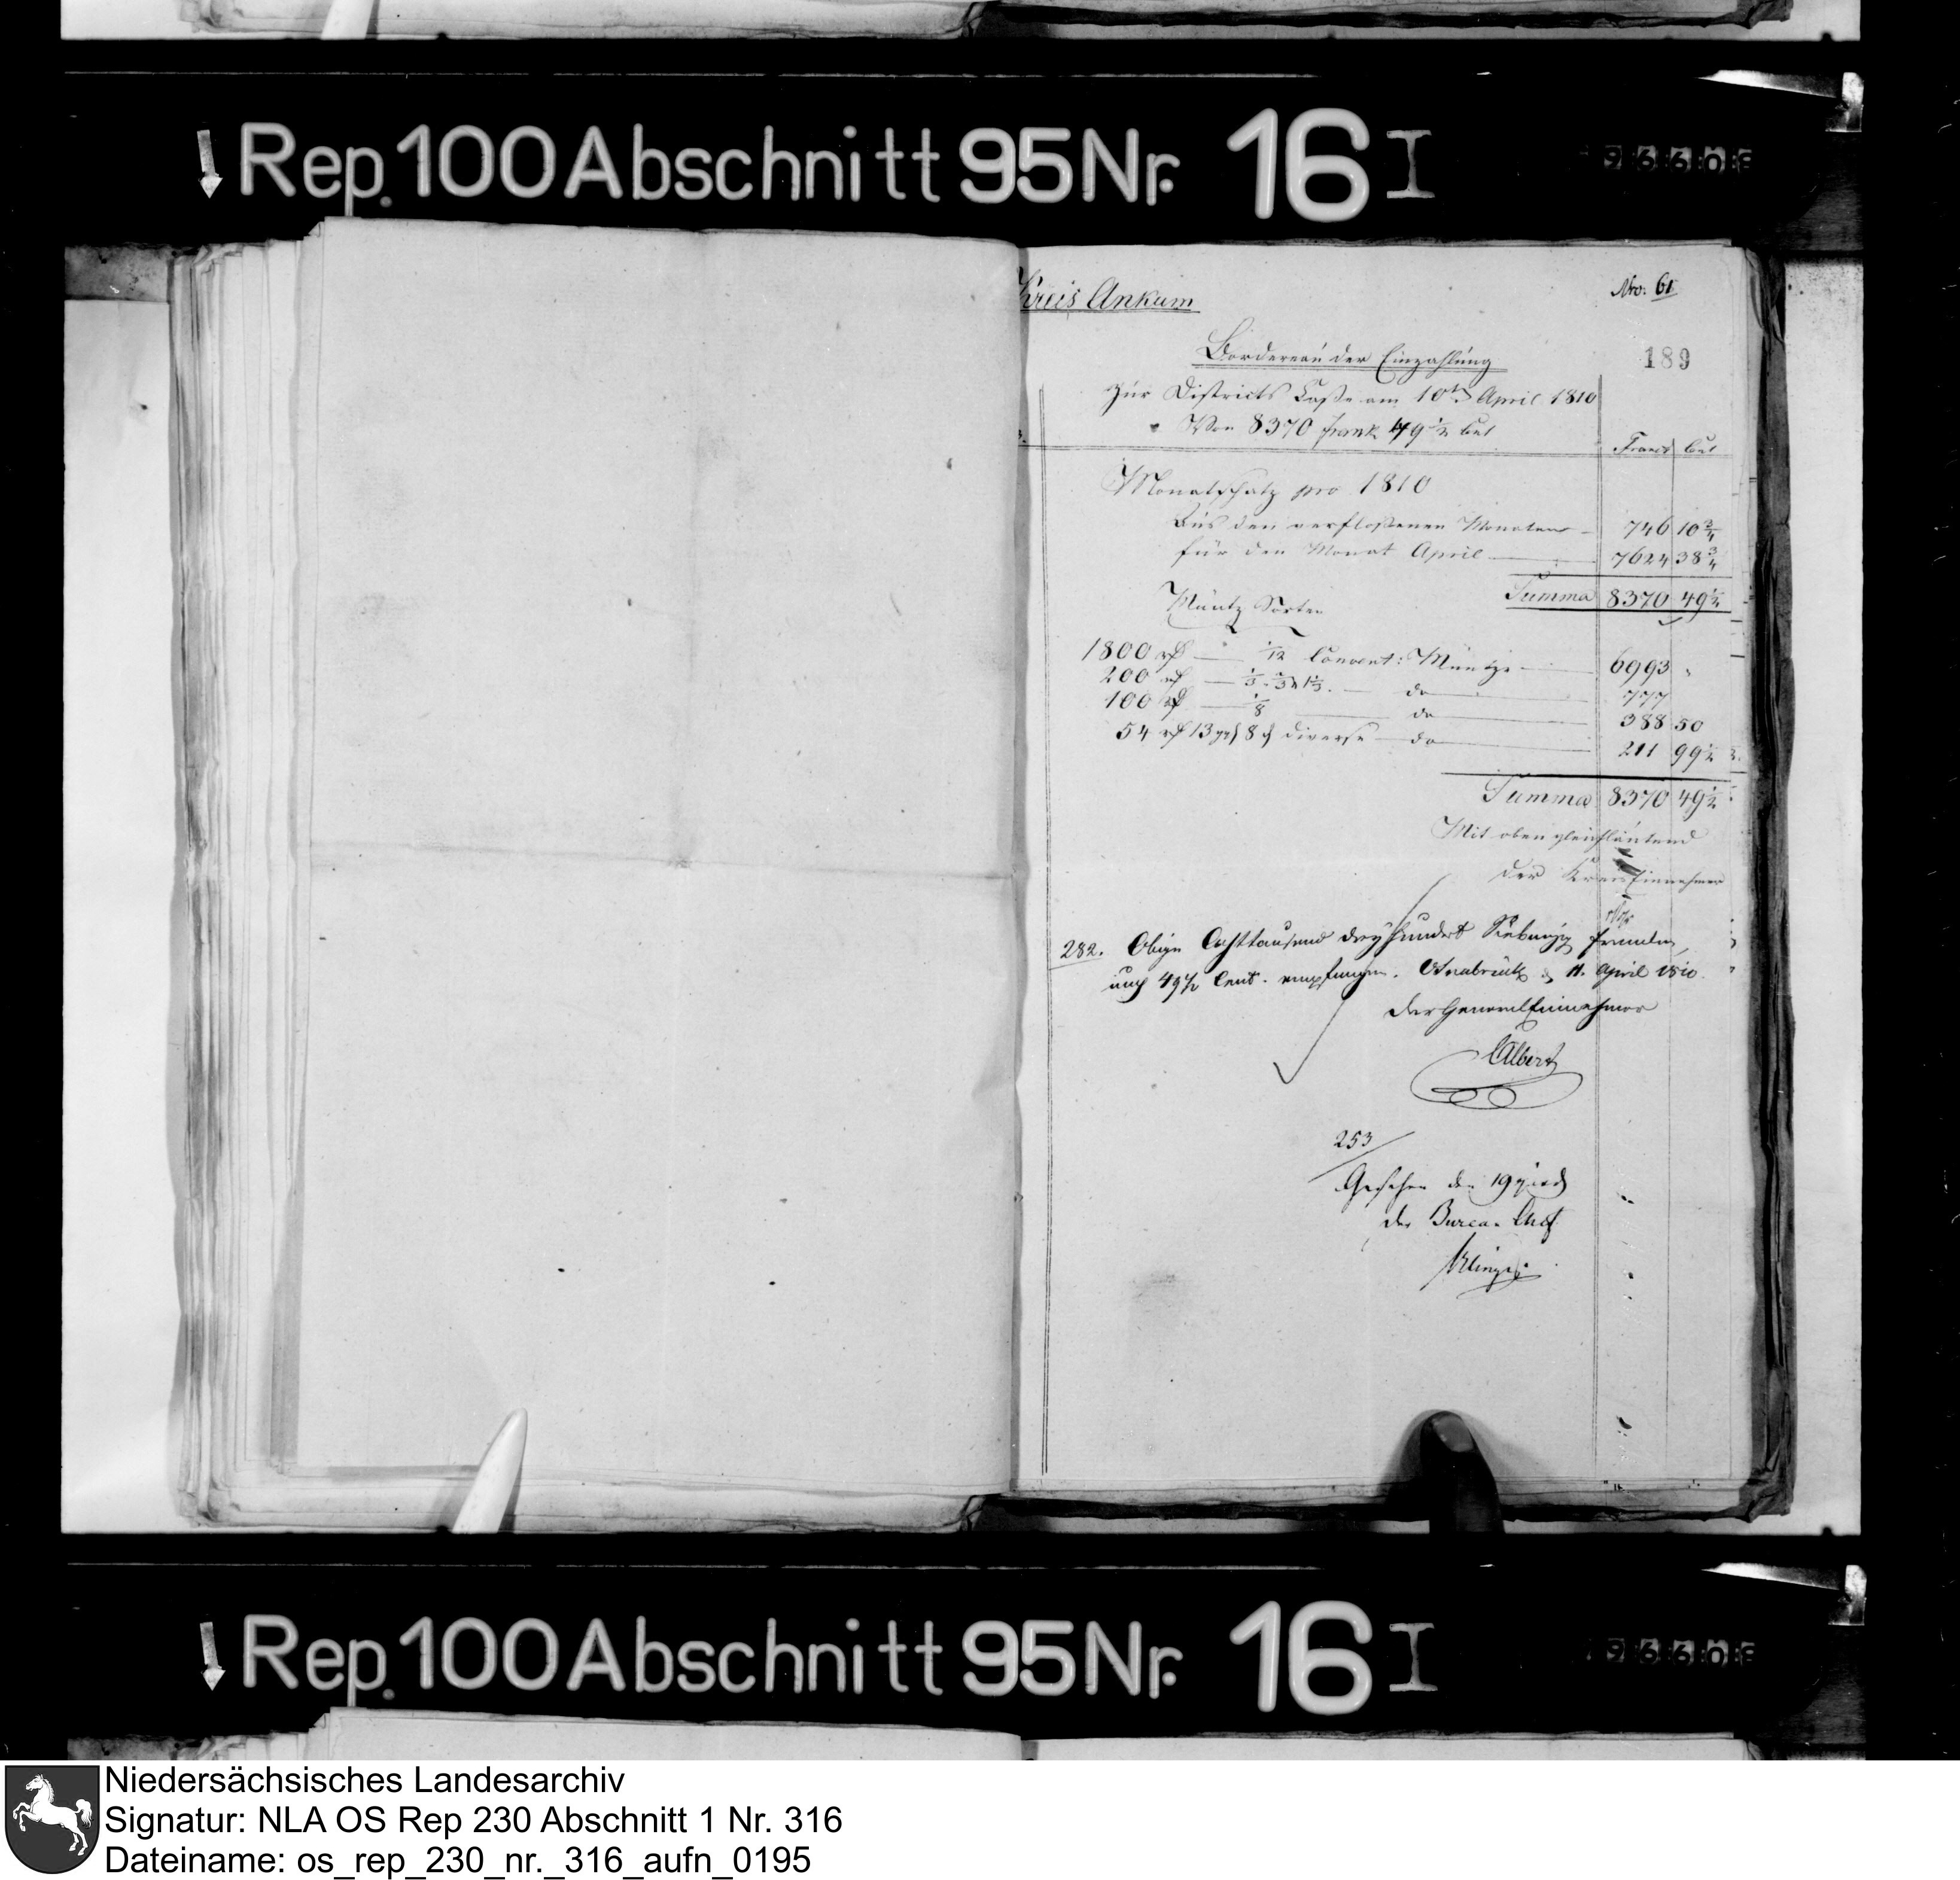 Rep. 100 Abschnitt 95 Nr. 16 I
Kreis Ankum
Nro. 61
Bordereau der Einzahlung
189
Zur Districts Casse am 10ten April 1810
Von 8370 frank 49 1/2 Cent
Francs Cent
Monatschatz pro 1810
Aus den verflossenen Monaten 746 10 3/4
für den Monat April 7624 38 3/4
Summa 8370 49 1/2
Müntz Sorten
1800 rth 1/12 Convent: Müntze 6993
200 rth 1/3 2/3 1 1/3 do 777
100 rth 1/8 do 388 50
54 rth 13 ggl 8 d diverse do 211 99 1/2
Summa 8370 49 1/2
Mit oben gleichlautend
der Kreis Einnehmer
282. Obige Achttausend dreyhundert Siebenzig Franken
und 49 1/2 Cent. empfangen. Osnabrück d. 11. April 1810.
Der General Einnehmer
CAlbert
253
Gesehen den 19
der Bureau Chef
Rep. 100 Abschnitt 95 Nr. 16 I
Niedersächsisches Landesarchiv
Signatur: NLA OS Rep 230 Abschnitt 1 Nr. 316
Dateiname: os_rep_230_nr._316_aufn_0195